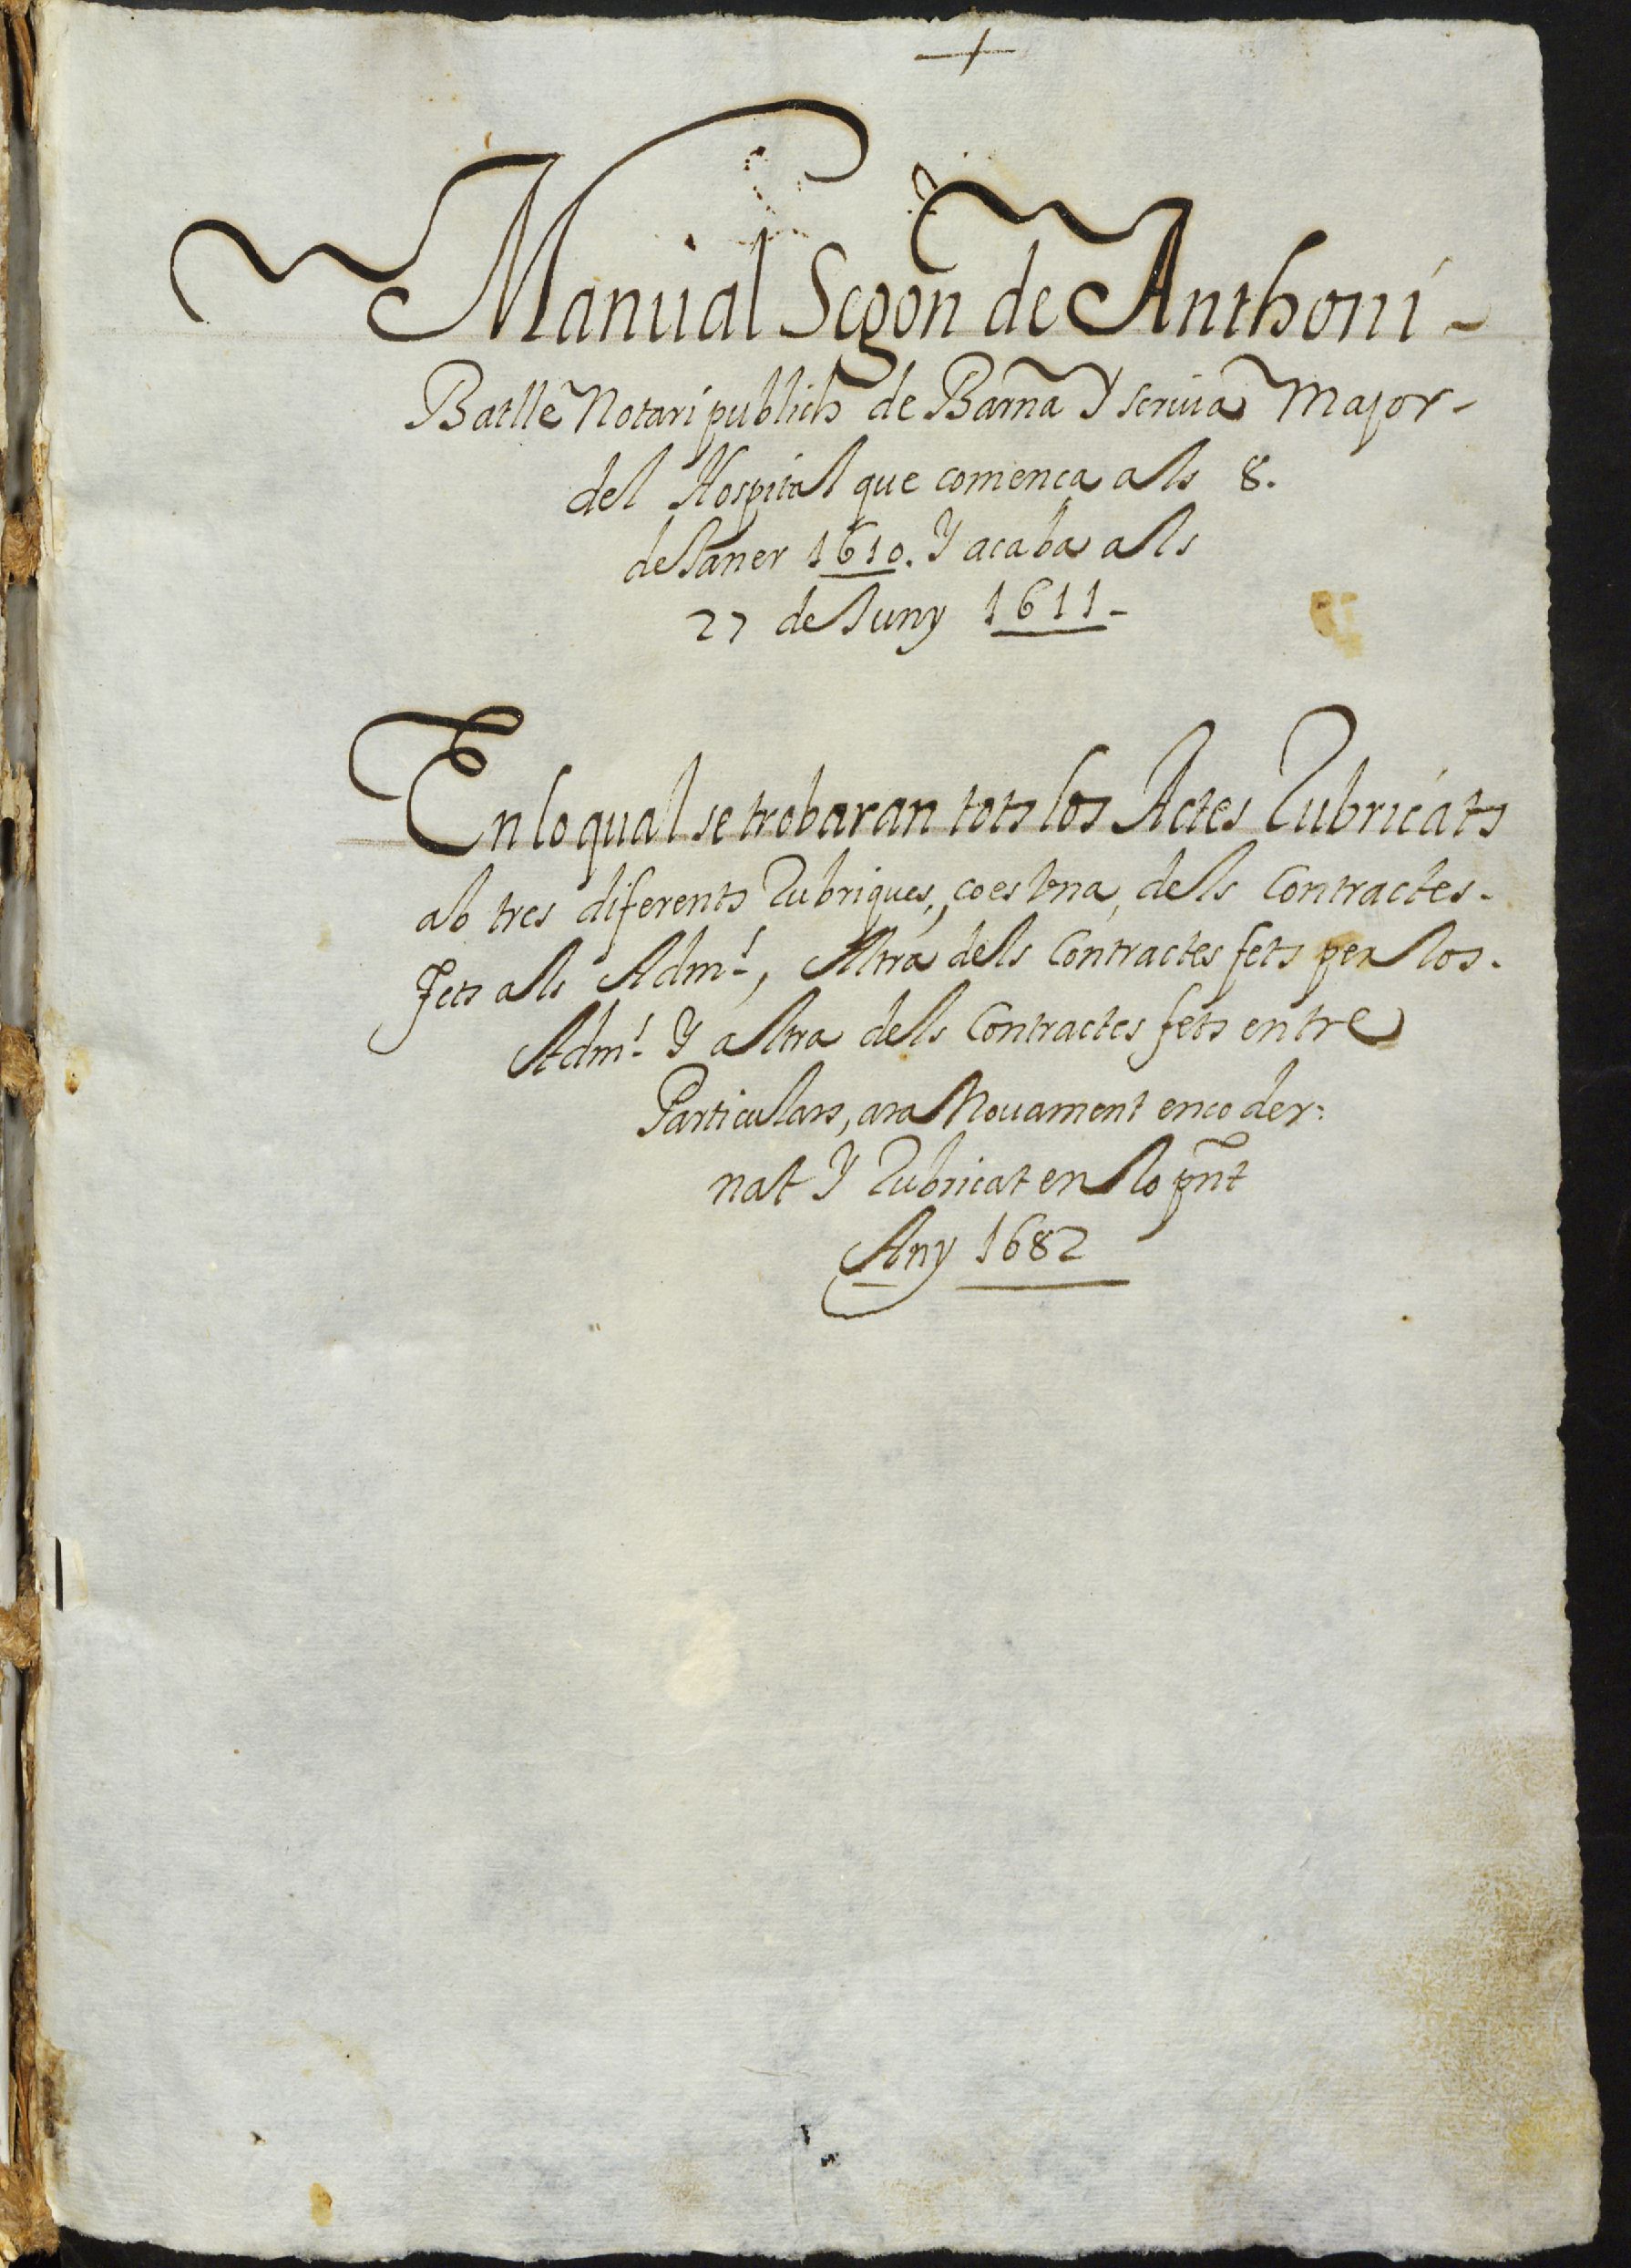 +
Manual Segon de Anthoni -
Batlle Notari publich de Barna Y scriua Major -
del Hospital que comenca als 8.
de Janer 1610. Y acaba als
27 de Juny 1611 -
En lo qual se trobaran tots los Actes Rubricats
ab tres diferents Rubriques, ço es Vna, dels Contractes -
Fets als Adm.rs, Altra dels Contractes fets per los -
Adm.rs Y altra dels Contractes fets entre
Particulars, ara Nouament encoder:
nat Y Rubricat en lo pñt
Any 1682